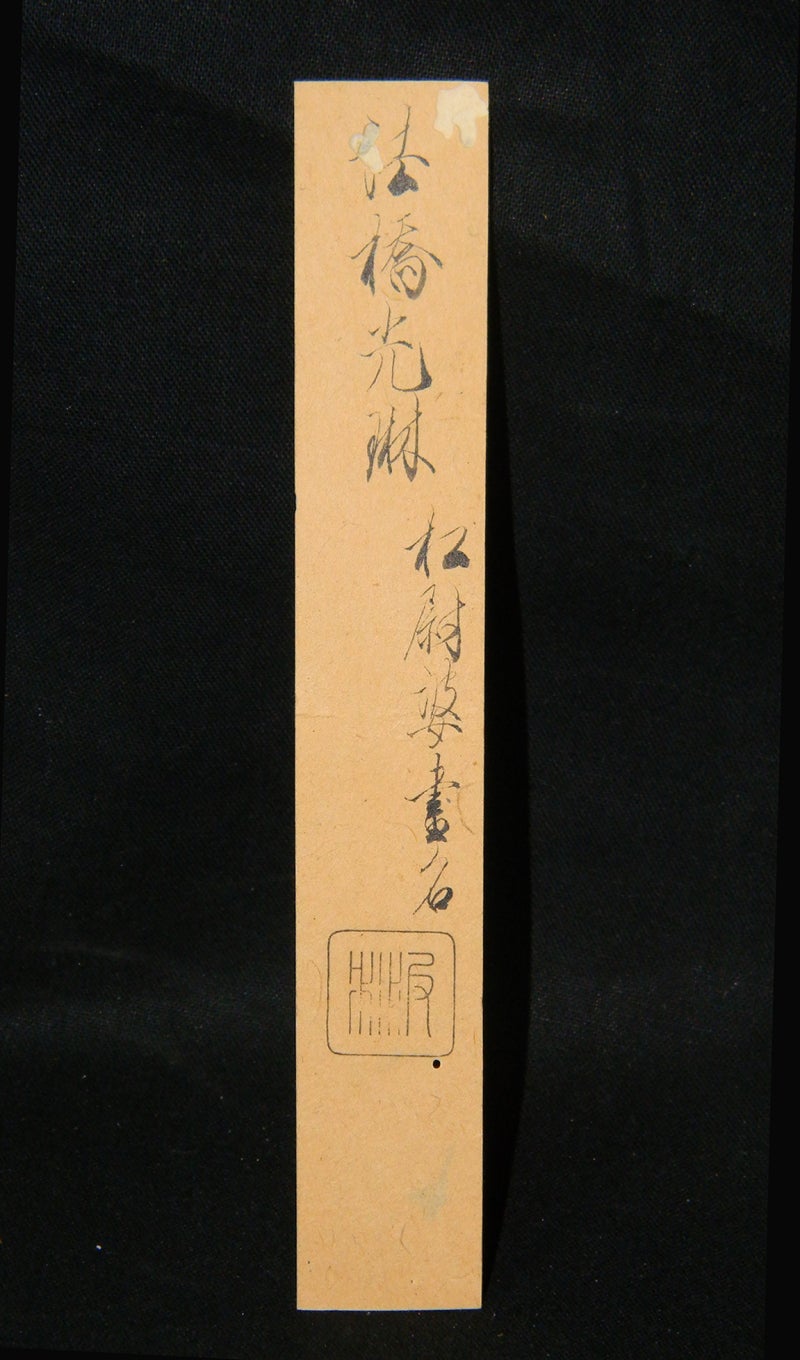 法橋光琳
松尉婆畫名